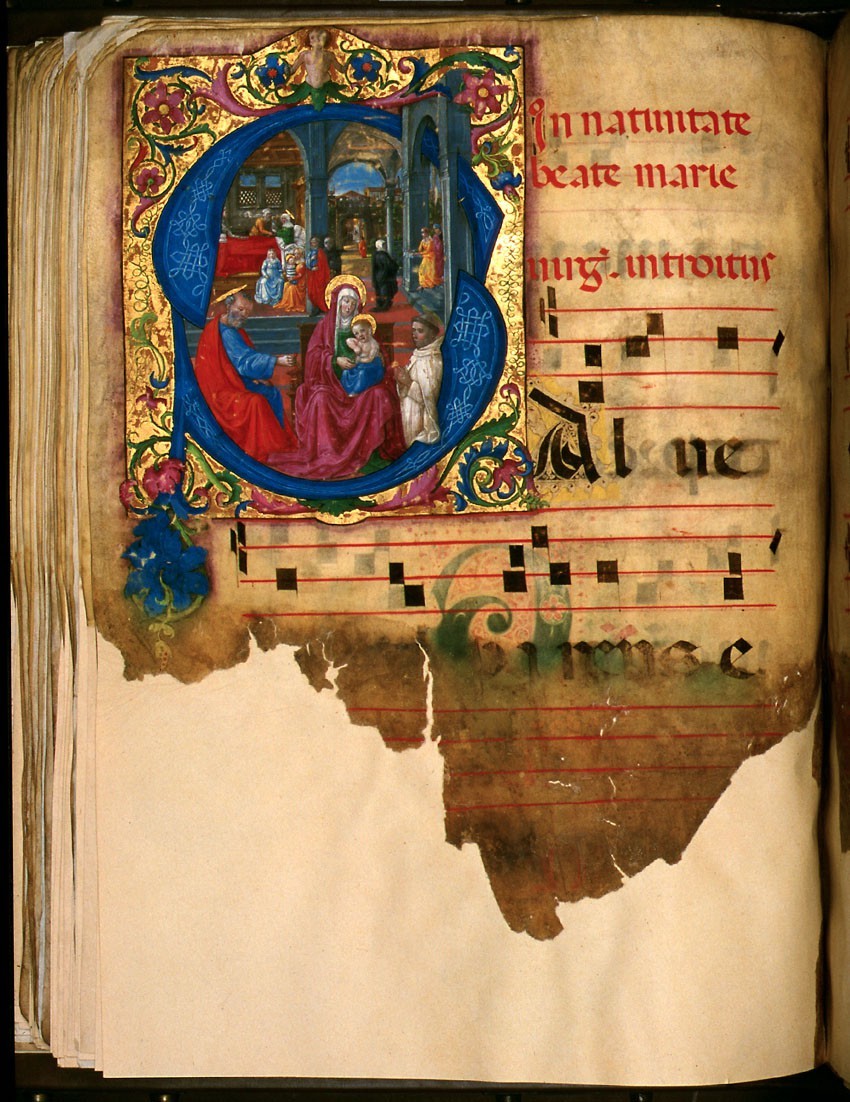 In natiuitate
beate marie
uirg̃. introitus
SAl ue
parens e